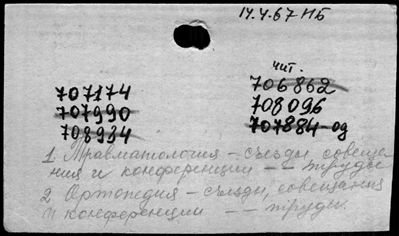 14.4.67 НБ
чит.
707174
707990
708934
706862
708096
707884-од
1. Травматология – съезды, совеща-
ния и конференции – – труды
2 Ортопедия – съезды, совещания
и конференции – – труды.